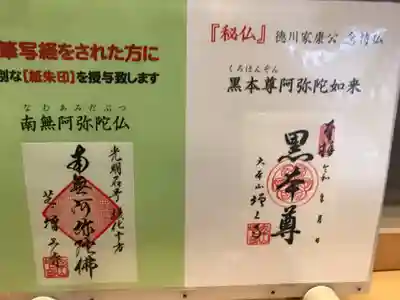 筆写経をされた方に
別な【紙朱印】を授与致します
なむあみだぶつ
南無阿弥陀仏
光明名号 摂化十方
南無阿弥陀佛
芝 増上寺
『秘仏』徳川家康公 念持仏
くろほんぞん
黒本尊阿弥陀如来
奉拝
黒本尊
令和 年 月 日
大本山 増上寺